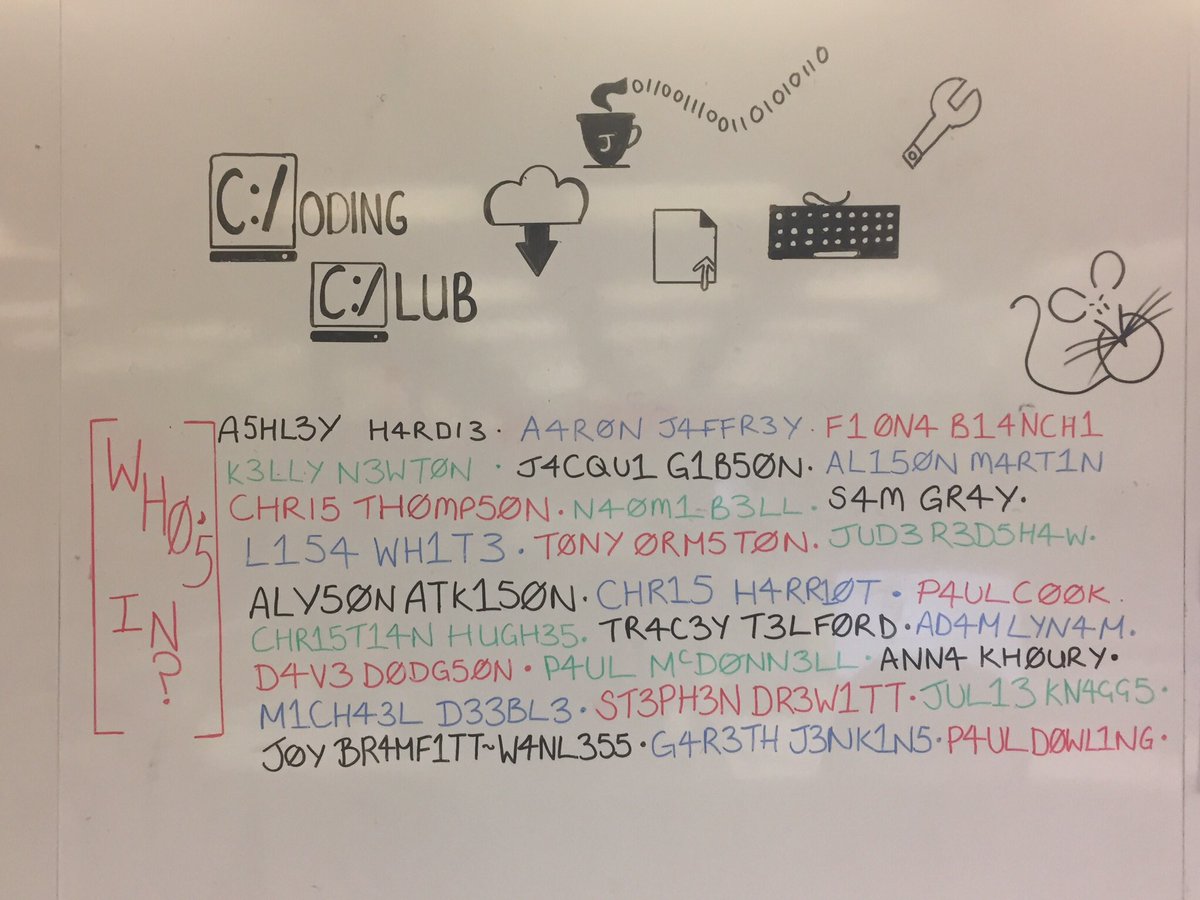 01100111001101010110
J
C:/ODING
C:/LUB
WHØ'5
IN
?
A5HL3Y H4RDI3· A4RØN J4FFR3Y· F1ØN4 B14NCH1
K3LLY N3WTØN · J4CQU1 G1B5ØN· AL15ØN M4RT1N
CHR15 THØMP5ØN· N4ØM1 B3LL· S4M GR4Y·
L154 WH1T3· TØNY ØRM5TØN· JUD3 R3D5H4W·
ALY5ØN ATK15ØN· CHR15 H4RR1ØT· P4UL CØØK·
CHR15T14N HUGH35· TR4C3Y T3LFØRD· AD4M LYN4M·
D4V3 DØDG5ØN· P4UL McDØNN3LL· ANN4 KHØURY·
M1CH43L D33BL3· ST3PH3N DR3W1TT· JUL13 KN4GG5·
JØY BR4MF1TT~W4NL355· G4R3TH J3NK1N5· P4UL DØWL1NG·